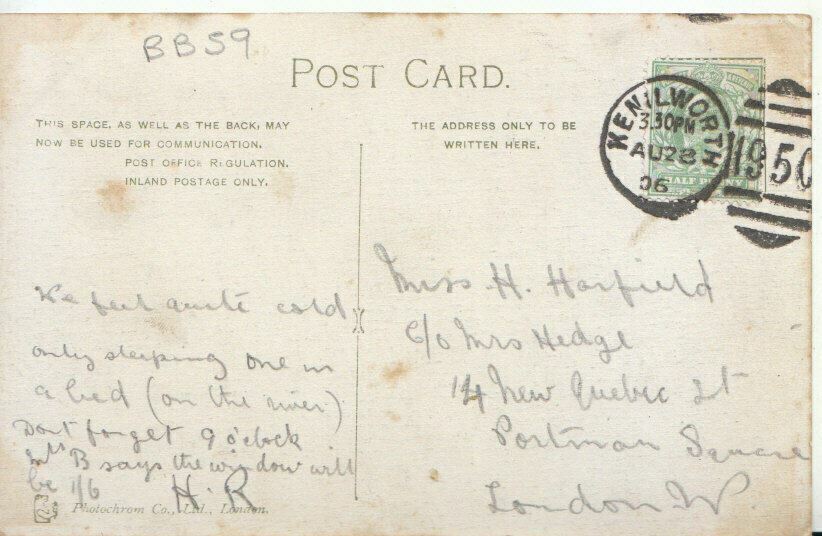 BB59
POST CARD.
THIS SPACE, AS WELL AS THE BACK, MAY
NOW BE USED FOR COMMUNICATION.
POST OFFICE REGULATION.
INLAND POSTAGE ONLY.
THE ADDRESS ONLY TO BE
WRITTEN HERE.
KENILWORTH
3.30PM
AU 28
06
950
HALF PENNY
We feel quite cold
only sleeping one in
a bed (on the river)
Dont forget 9 o'clock
Mrs B says the window will
be 1/6 H.R
Photochrom Co., Ltd., London.
Miss H. Harfield
c/o Mrs Hedge
14 New Quebec St
Portman Square
London W.